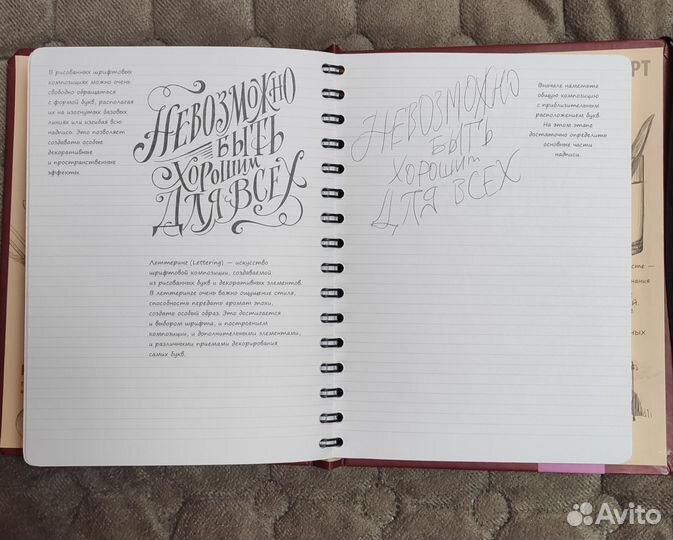 В рисованных шрифтовых
композициях можно очень
свободно обращаться
с формой букв, располагая
их на изогнутых базовых
линиях или изгибая всю
надпись. Это позволяет
создавать особые
декоративные
и пространственные
эффекты.
НЕВОЗМОЖНО
БЫТЬ
ХОРОШИМ
ДЛЯ ВСЕХ
Леттеринг (Lettering) — искусство
шрифтовой композиции, создаваемой
из рисованных букв и декоративных элементов.
В леттеринге очень важно ощущение стиля,
способность передать аромат эпохи,
создать особый образ. Это достигается
и выбором шрифта, и построением
композиции, и дополнительными элементами,
и различными приемами декорирования
самих букв.
НЕВОЗМОЖНО
БЫТЬ
ХОРОШИМ
ДЛЯ ВСЕХ
Вначале наметьте
общую композицию
с приблизительным
расположением букв.
На этом этапе
достаточно определить
основные части
надписи.
Avito